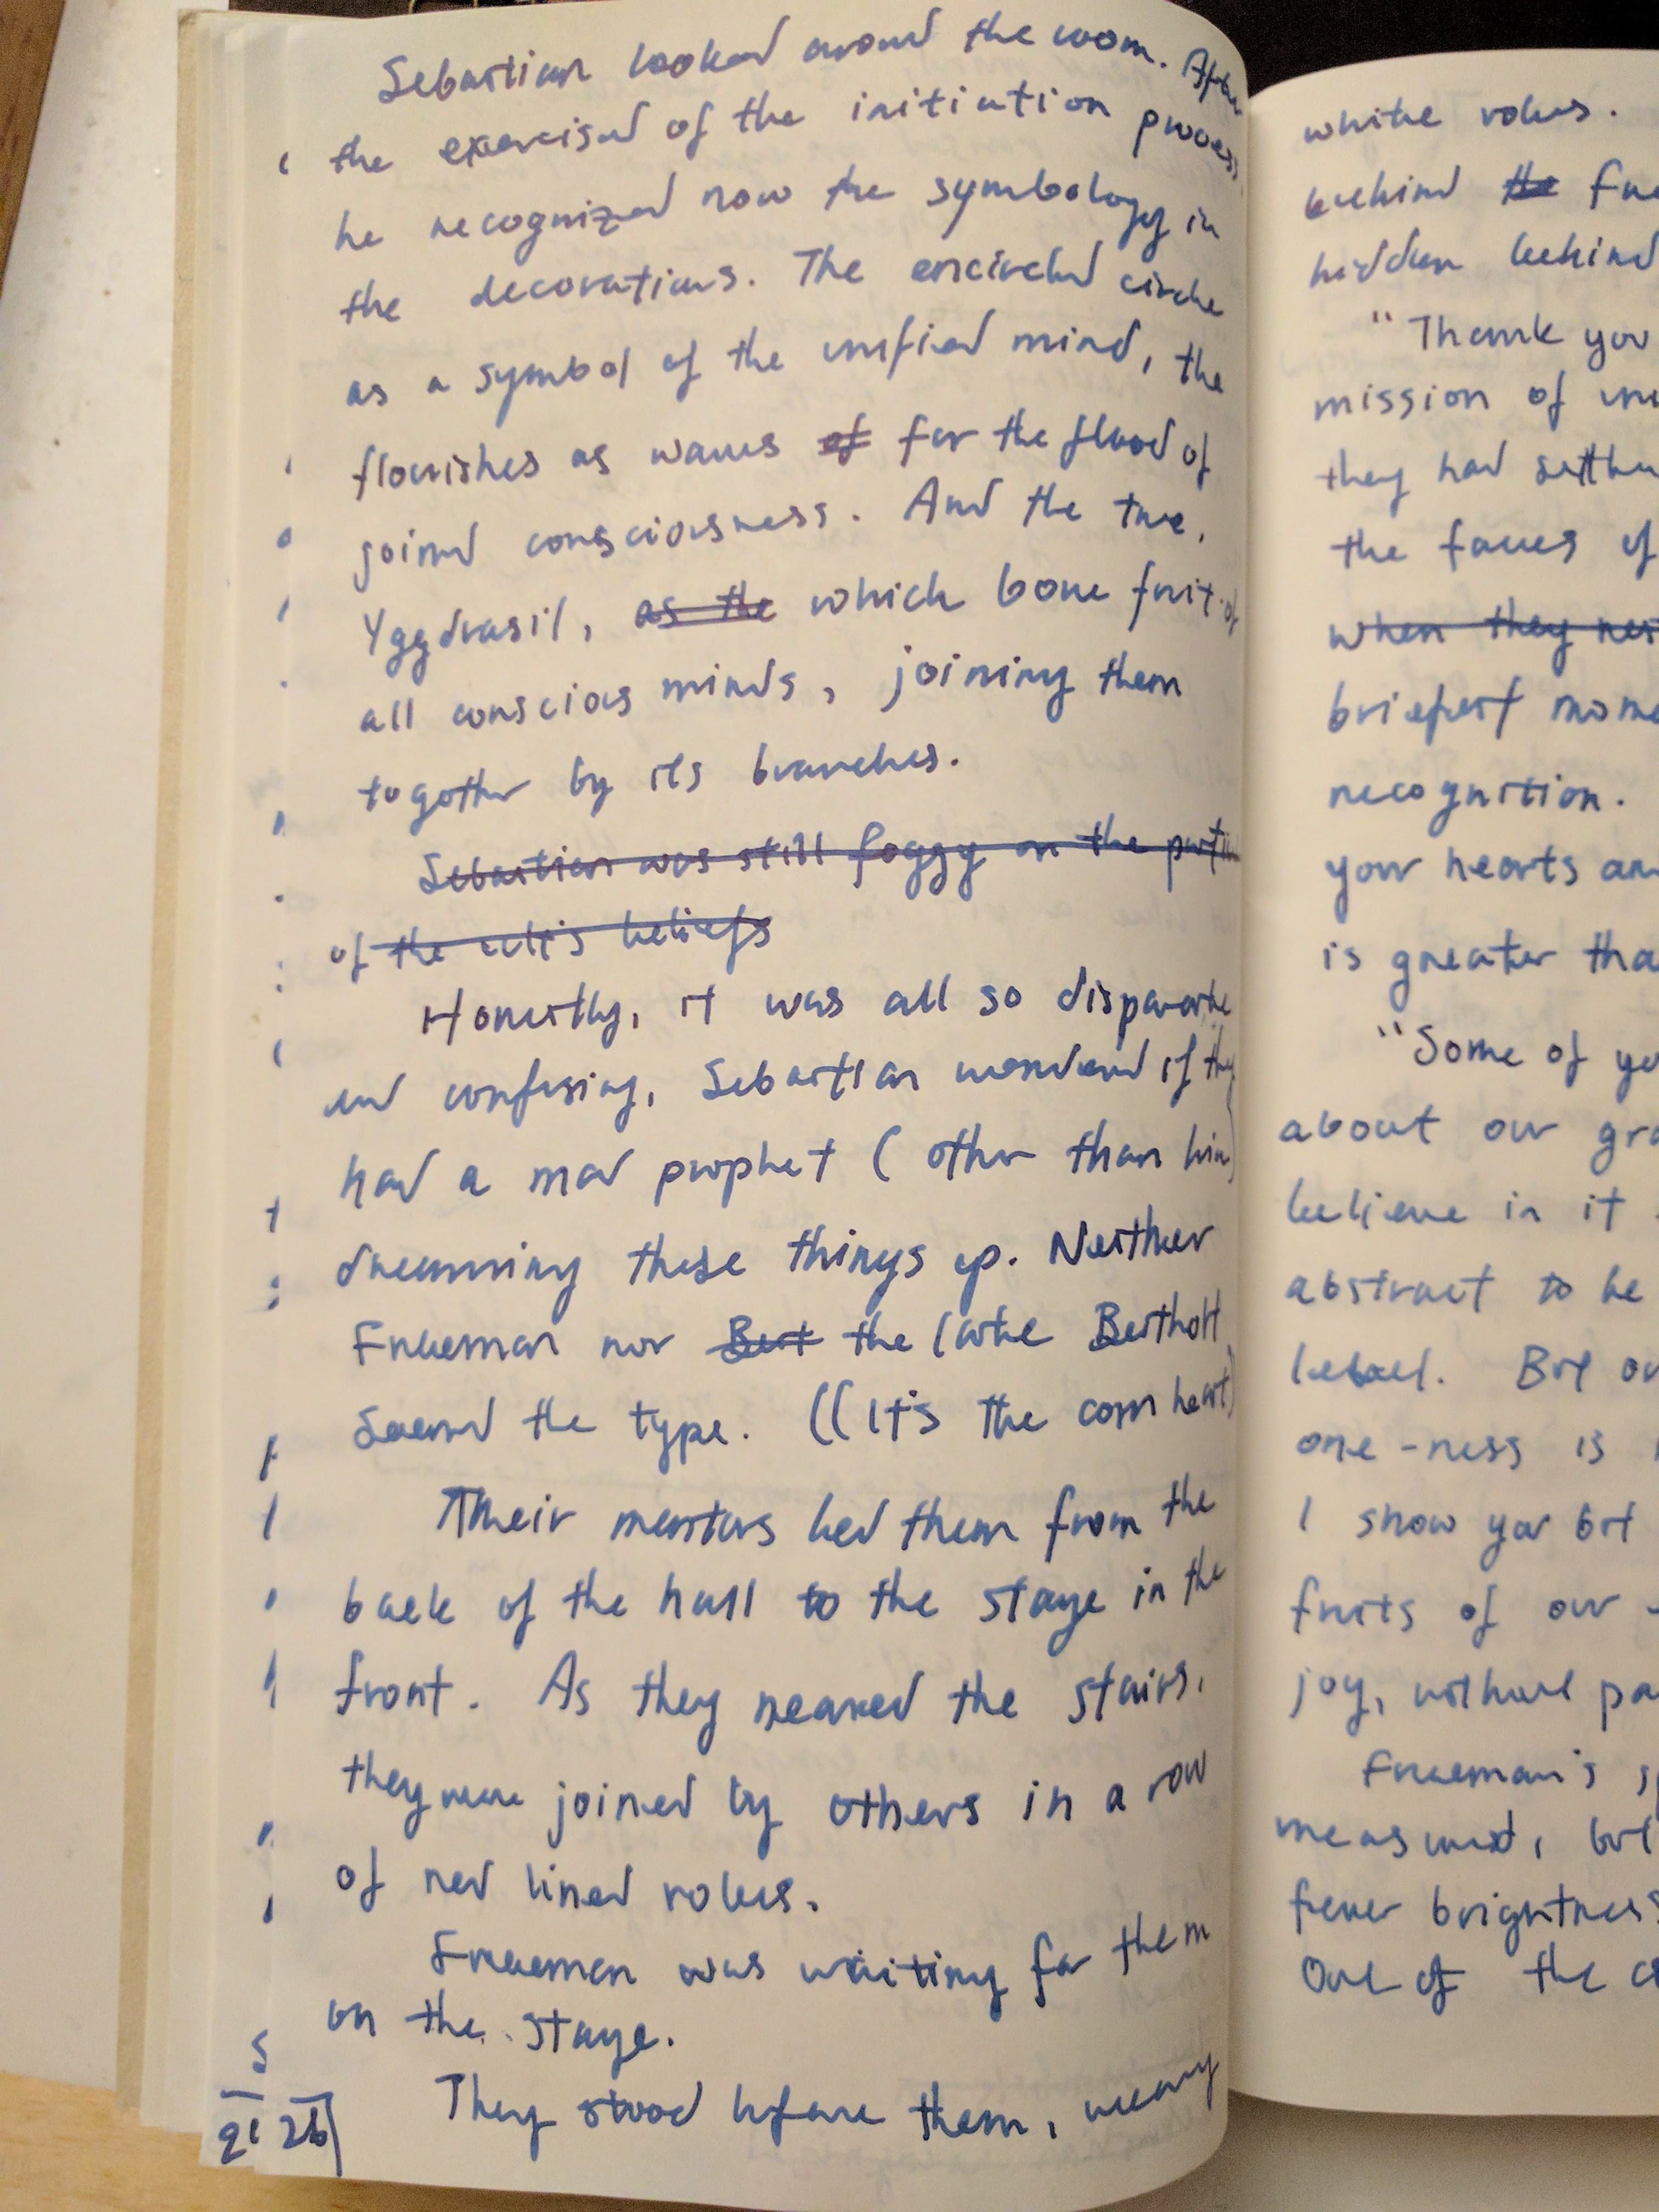 Sebastian looked around the room. After
the exercised of the initiation process
he recognized now the symbology in
the decorations. The encircled circle
as a symbol of the unified mind, the
flourishes as waves of for the flood of
joined consciousness. And the tree,
Yggdrasil, as the which bore fruit of
all conscious minds, joining them
together by its branches.
Sebastian was still foggy on the
of the cult's beliefs
Honestly, it was all so disparate
and confusing, Sebastian wondered if they
had a mad prophet (other than him)
dreaming these things up. Neither
Freeman nor Bert the late Berthold
seemed the type. ((It's the corn heart)
Their mentors led them from the
back of the hall to the stage in the
front. As they neared the stairs,
they were joined by others in a row
of red lined robes.
Freeman was waiting for them
on the stage.
They stood before them, wearing
26
white robes.
behind the
hidden behind
"Thank you
mission of
they had
the faces of
when they
briefest
recognition.
your hearts
is greater
"Some of
about our
believe in it
abstract to be
But
one-ness is
I show you but
fruits of our
joy, without
Freeman's
measured, but
fever brightness
One of the